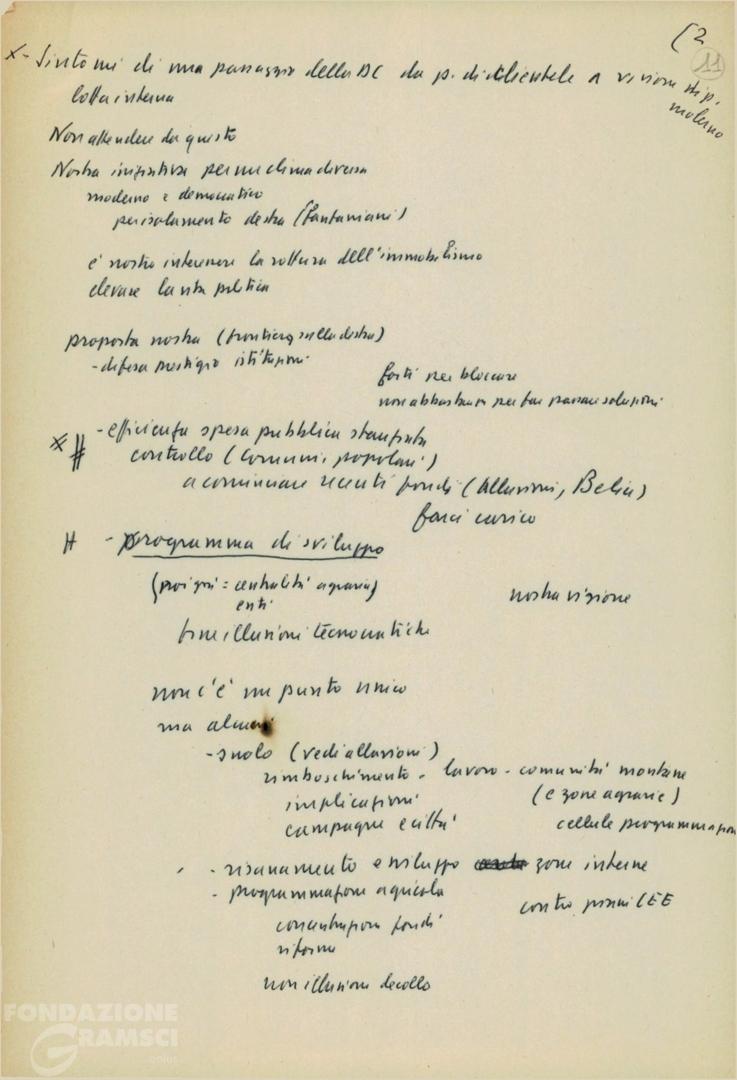 [2
11
x- Sintomi di una passaggio della DC da p. di clientele a visione di p. moderno
lotta interna
Non attendere da questo
Nostra iniziativa per un clima diverso
moderno e democratico
per isolamento destra (fanfaniani)
è nostro interesse la rottura dell'immobilismo
elevare la vita politica
proposta nostra (frontiera sulla destra)
- difesa prestigio istituzioni
forti per bloccare
non abbastanza per far passare soluzioni
x # - efficienza spesa pubblica stanziata
controllo (comuni, popolari)
a cominciare recenti fondi (alluvioni, Belice)
farci carico
H - programma di sviluppo
(poi giù = centralità agraria)
enti
fine illusioni tecnocratiche
nostra visione
non c'è un punto unico
ma alcuni
- suolo (vedi alluvioni)
rimboschimento - lavoro - comunità montane
implicazioni (e zone agrarie)
campagne e città cellule programmazione
- risanamento e sviluppo zone interne
- programmazione agricola
contro piani CEE
concentrazione fondi
riforme
non illusione decollo
FONDAZIONE
GRAMSCI
onlus